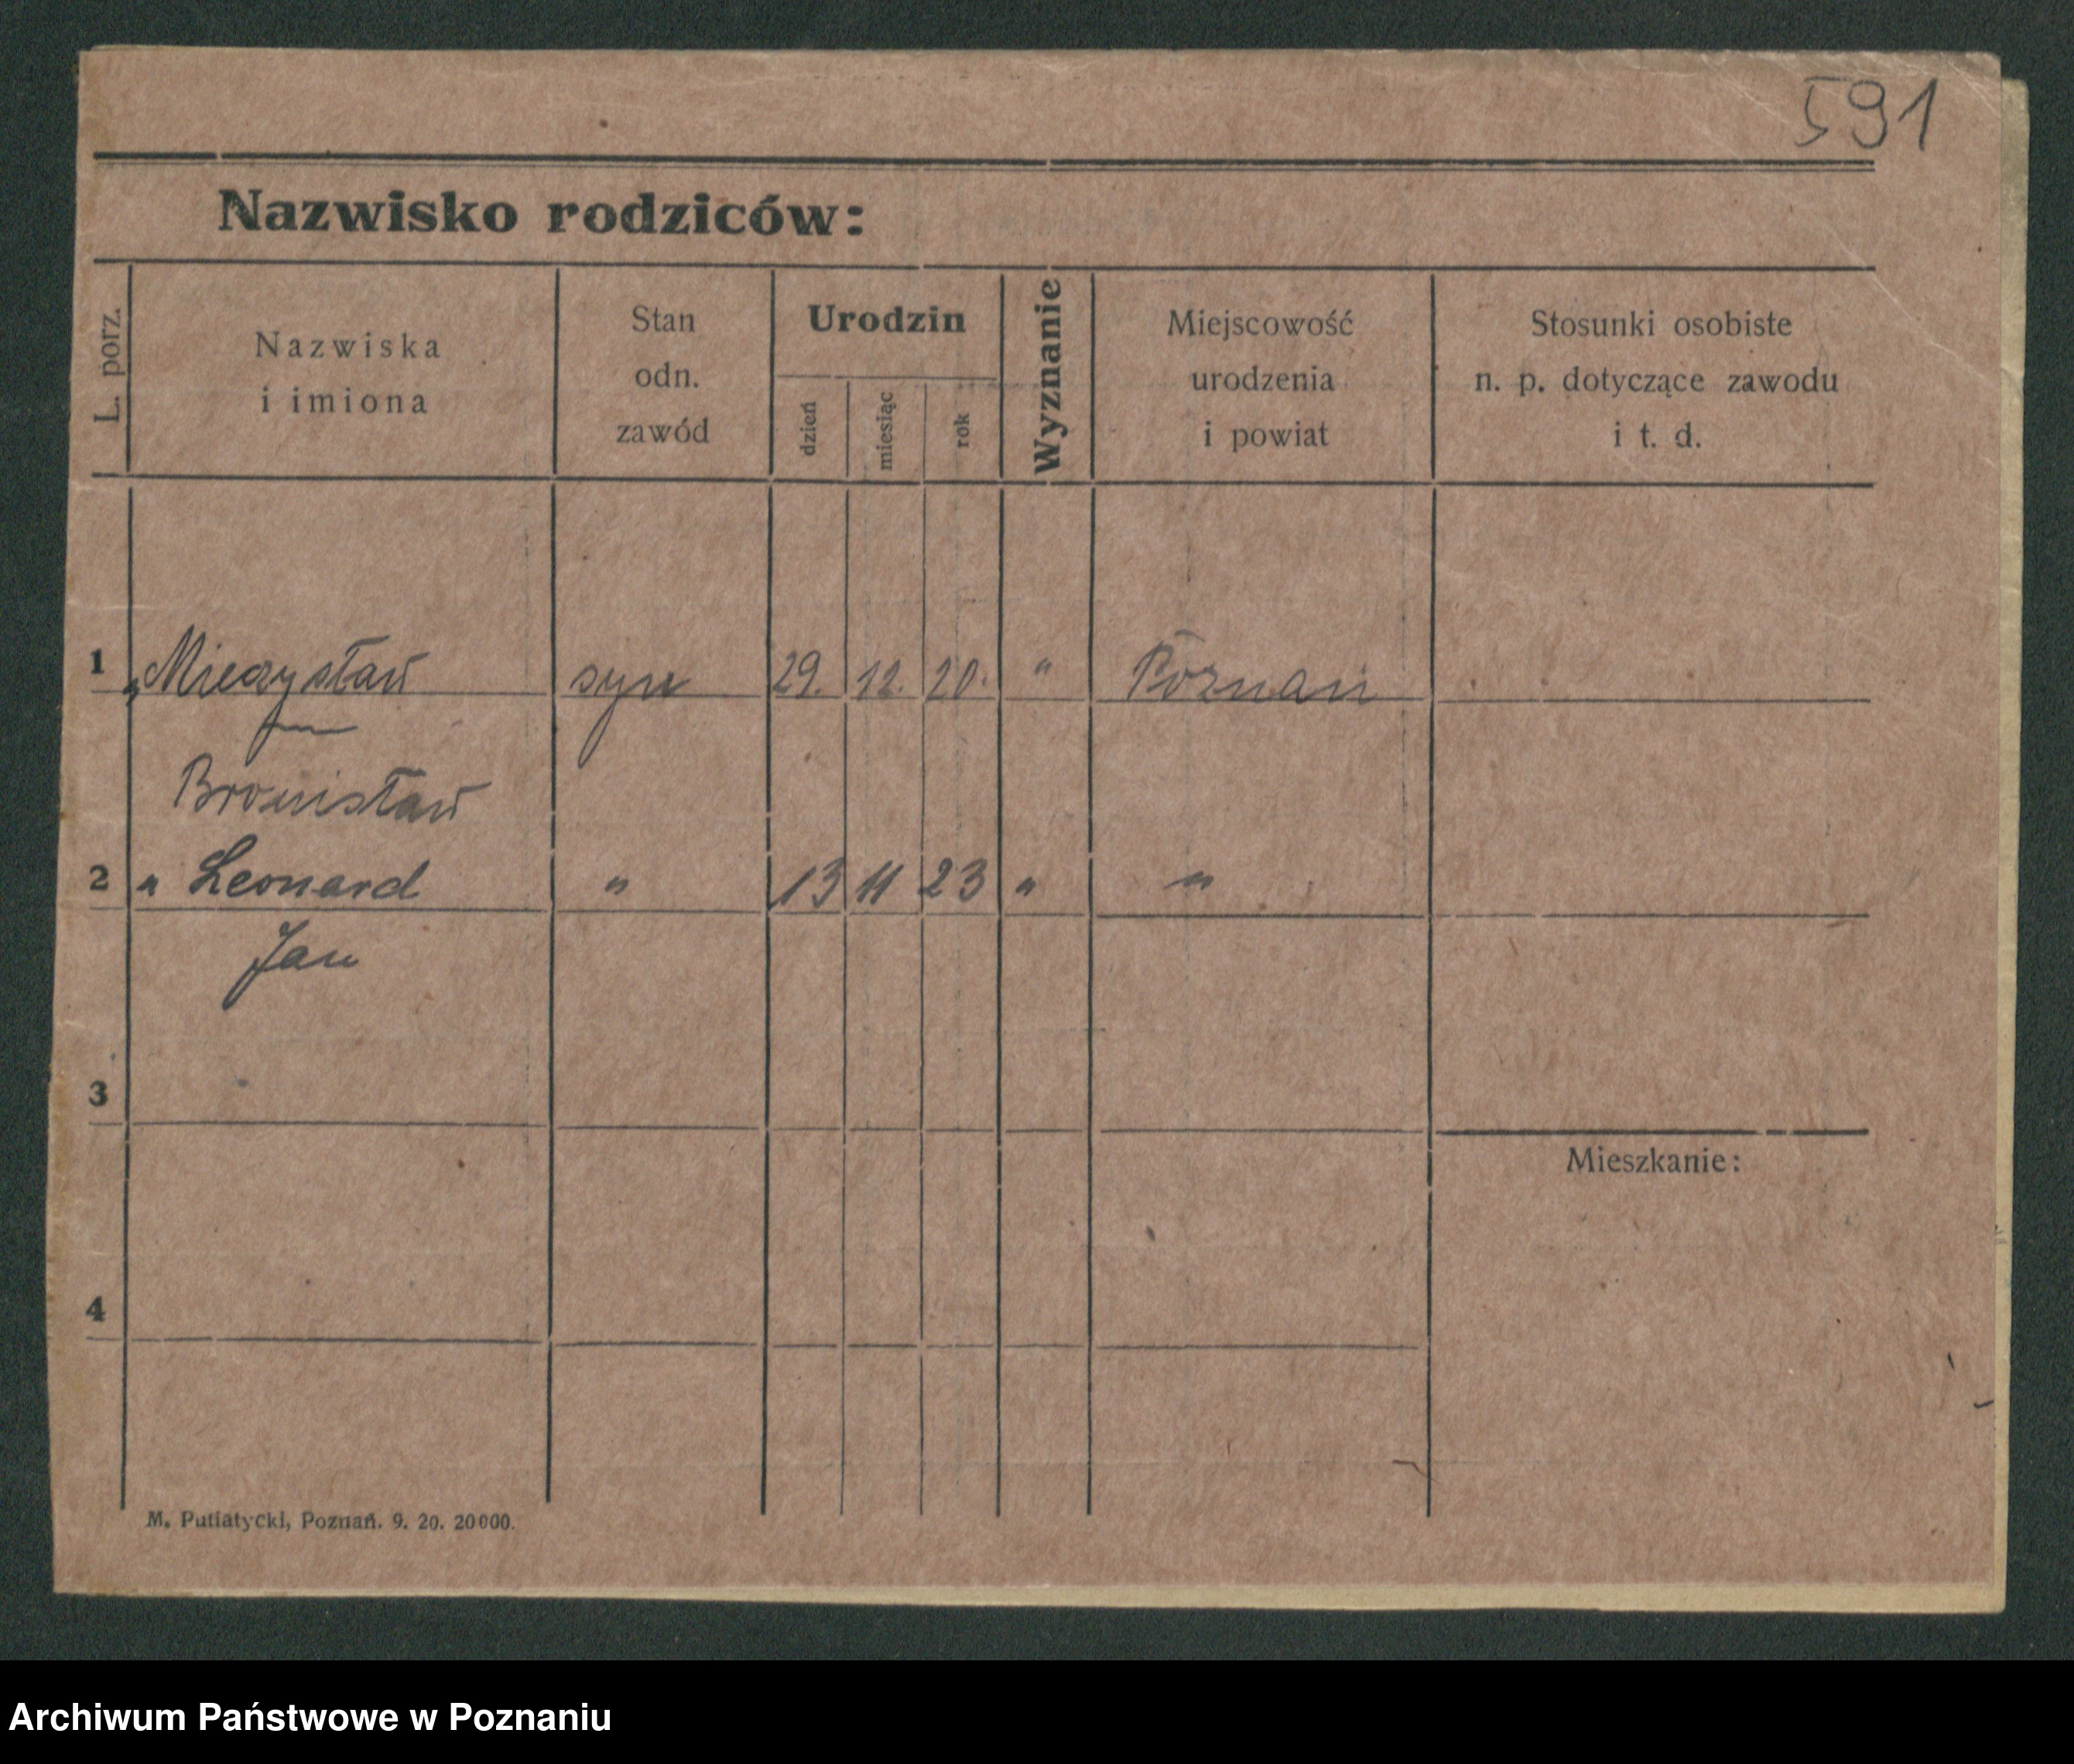 591
Nazwisko rodziców:
L. porz.
Nazwiska
i imiona
Stan
odn.
zawód
Urodzin
dzień
miesiąc
rok
Wyznanie
Miejscowość
urodzenia
i powiat
Stosunki osobiste
n. p. dotyczące zawodu
i t. d.
1 „ Mieczysław syn 29. 12. 20. " Poznań
Bronisław
2 " Leonard " 13 11 23 " "
Jan
3
Mieszkanie:
4
M. Putiatycki, Poznań. 9. 20. 20000.
Archiwum Państwowe w Poznaniu